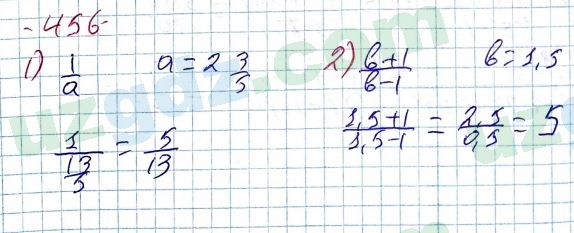 -456-
1) 1/a a = 2 3/5
1/(13/5) = 5/13
2) (b+1)/(b-1) b = 1,5
(1,5+1)/(1,5-1) = 2,5/0,5 = 5